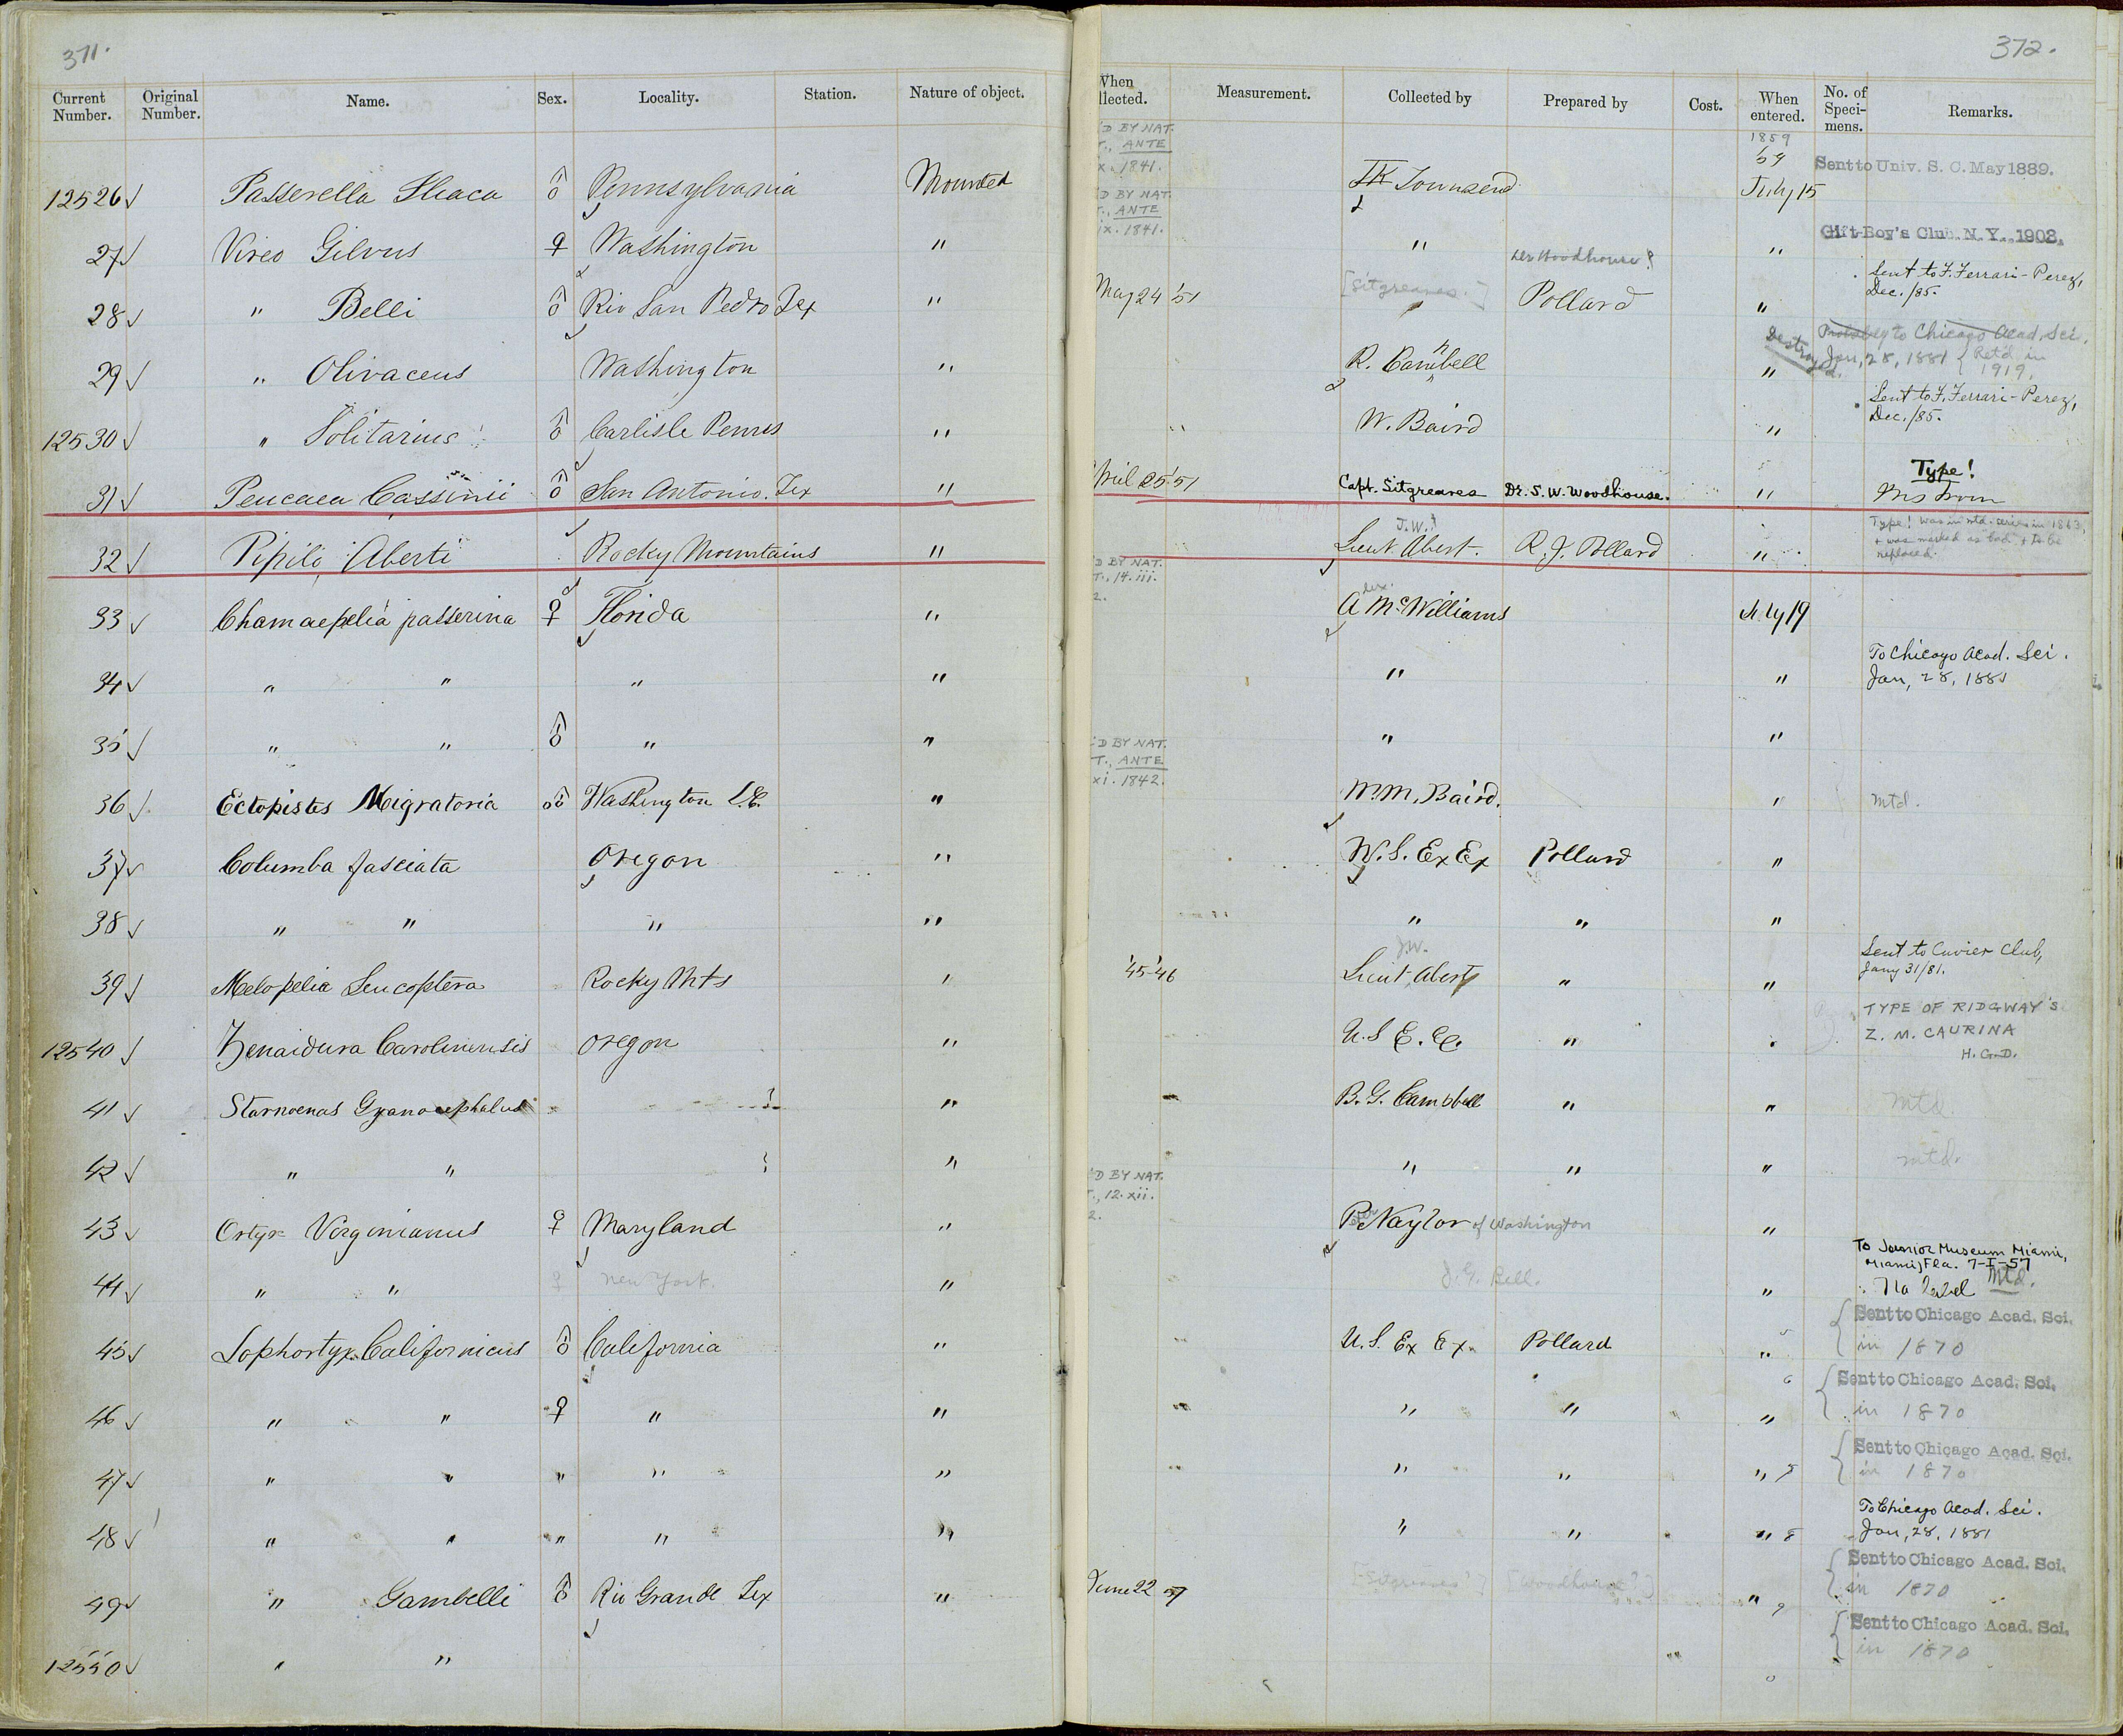 371.
Current Number. Original Number. Name. Sex. Locality. Station. Nature of object.
12526 ✓ Passerella Iliaca ♂ Pennsylvania Mounted
27 ✓ Vireo Gilvus ♀ Washington "
28 ✓ " Belli ♂ Rio San Pedro Tex "
29 ✓ " Olivaceus Washington "
12530 ✓ " Solitarius ♂ Carlisle Penns "
31 ✓ Peucaea Cassinii ♂ San Antonio. Tex "
32 ✓ Pipilo Aberti Rocky Mountains "
33 ✓ Chamaepelia passerina ♀ Florida "
34 ✓ " " " "
35 ✓ " " ♂ " "
36 ✓ Ectopistes Migratoria ♂ Washington D.C. "
37 ✓ Columba fasciata Oregon "
38 ✓ " " " "
39 ✓ Melopelia Leucoptera Rocky Mts "
12540 ✓ Zenaidura Carolinensis Oregon "
41 ✓ Starnoenas Cyanocephalus "
42 ✓ " " "
43 ✓ Ortyx Virginianus ♀ Maryland "
44 ✓ " " ♀ New York. "
45 ✓ Lophortyx Californicus ♂ California "
46 ✓ " " ♀ " "
47 ✓ " " " " "
48 ✓ " " " " "
49 ✓ " Gambelli ♂ Rio Grande Tex "
12550 ✓ " "
372.
When llected. Measurement. Collected by Prepared by Cost. When entered. No. of Speci-mens. Remarks.
'D BY NAT.
T., ANTE
x. 1841.
JK Townsend 1859 59 July 15 Sent to Univ. S. C. May 1889.
D BY NAT.
T., ANTE
ix. 1841.
" " Gift Boy's Club. N. Y., 1903.
May 24 '51 [Sitgreaves.] " Dr Woodhouse? Pollard " Sent to F. Ferrari-Perez,
Dec. /85.
R. Cambell " Destroyed. Probably to Chicago Acad. Sci.
Jan, 28, 1881 { Ret'd in
1919.
" W. Baird " Sent to F. Ferrari-Perez,
Dec. /85.
April 25 '51 Capt. Sitgreaves Dr. S. W. Woodhouse. " Type!
J.W. Lieut Abert. R. J. Pollard " Type! was in mtd. series in 1863,
+ was marked as bad + to be
replaced.
D BY NAT.
T., 14. iii.
2.
A Mc Williams July 19
" " To Chicago Acad. Sci.
Jan, 28, 1881
" "
'D BY NAT.
T., ANTE
xi. 1842.
Wm. M. Baird. " mtd.
U. S. Ex Ex Pollard "
" " "
'45-'46 J.W. Lieut. Abert " " Sent to Cuvier Club,
Jany 31/81.
U. S E. Ex. " " TYPE OF RIDGWAY'S
Z. M. CAURINA
H. G. D.
B. G. Campbell " " mtd.
" " " mtd.
'D BY NAT.
T., 12. xii.
2.
P. Naylor of Washington "
J. G. Bell. " To Junior Museum Miami,
Miami, Fla. 7-I-57
No label Mtd.
U. S. Ex Ex. Pollard " { Sent to Chicago Acad. Sci.
in 1870
" " " { Sent to Chicago Acad. Sci.
in 1870
" " " { Sent to Chicago Acad. Sci.
in 1870
" " " 8 To Chicago Acad. Sci.
Jan, 28, 1881
June 22 [Sitgreaves?] [Woodhouse?] " 9 { Sent to Chicago Acad. Sci.
in 1870
{ Sent to Chicago Acad. Sci.
in 1870